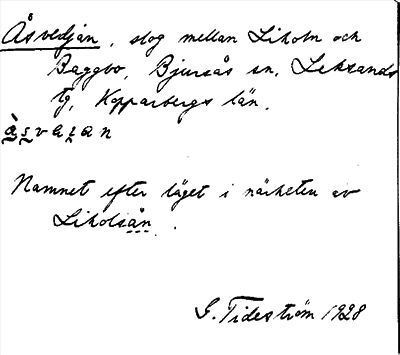 Åsvedjan, slog mellan Liholn och
Baggbo, Bjursås sn, Leksands
tg, Kopparbergs län.
àsvaʓan
Namnet efter läget i närheten av
Liholsån.
G. Tideström 1928